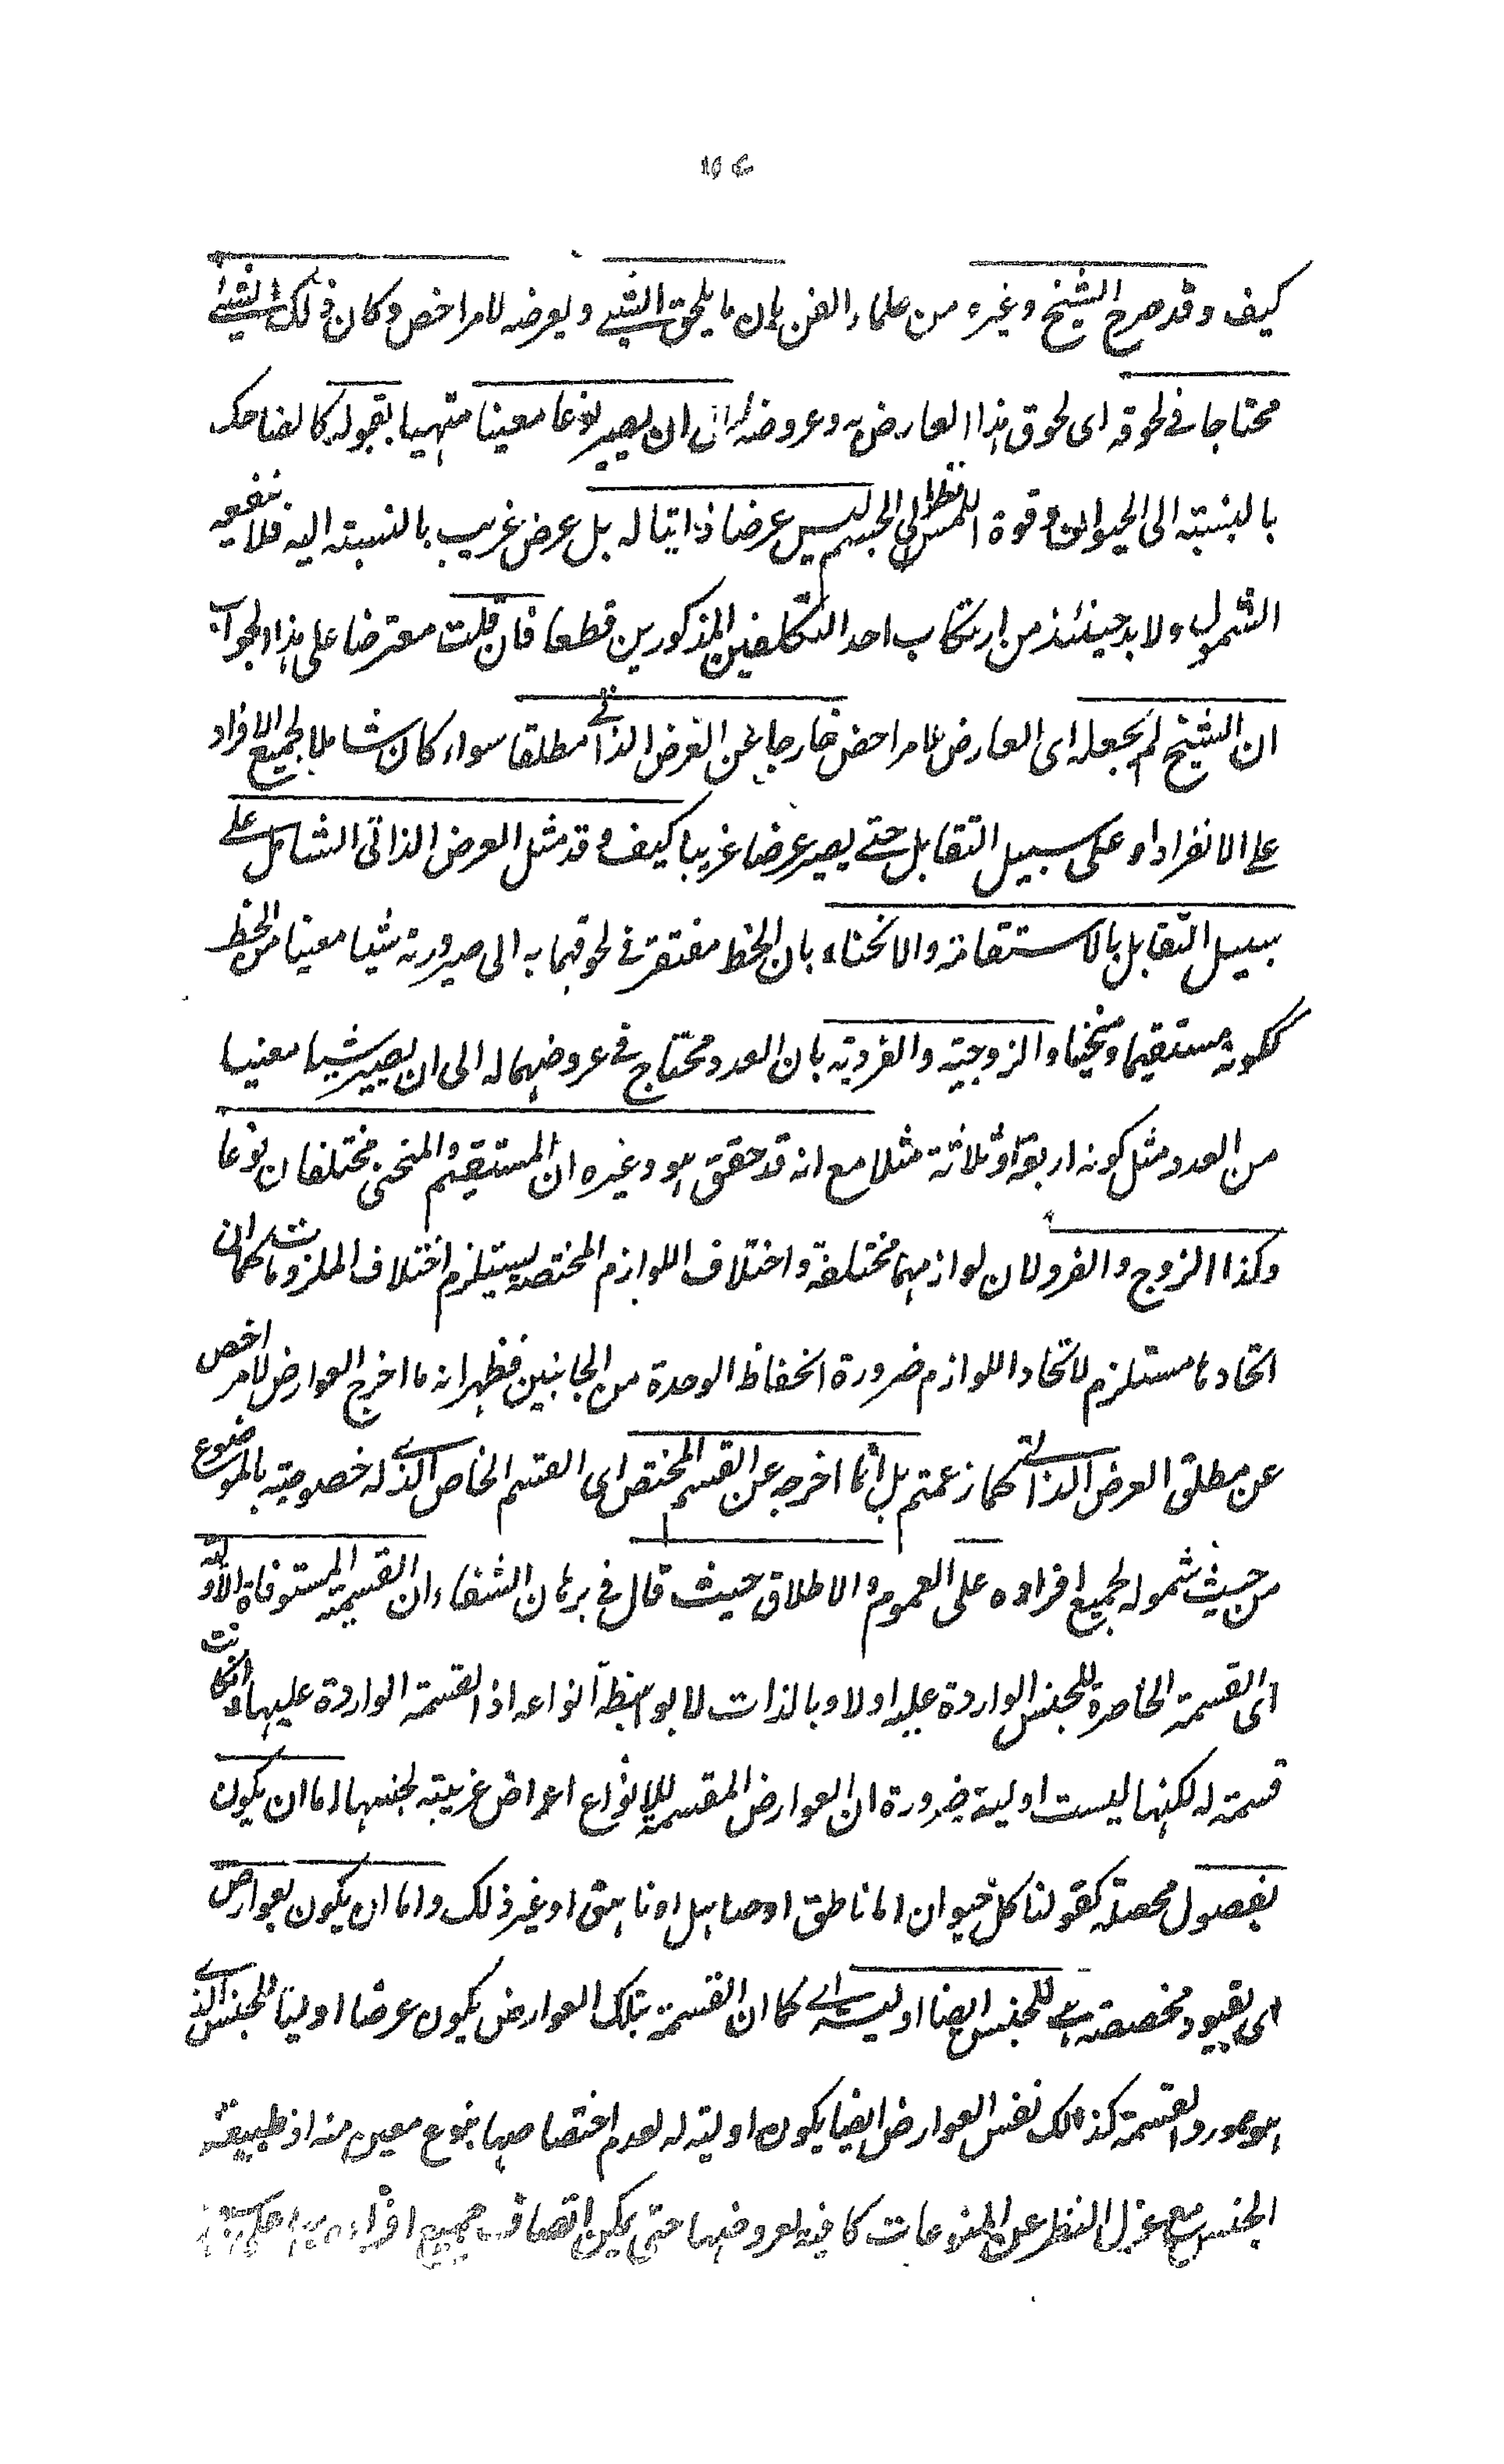 كيف وقد صرح الشيخ وغيره من علماء الفن بان ما يلحق الشيء ويعرضه لامر اخص وكان ذلك الشيء
محتاجا في لحوقه اى لحوق هذا العارض به وعروضه له الى ان يصير نوعا معينا متهيا بقبوله كالضاحك
بالنسبته الى الحيوان وقوة اللمس نظرا الى الجسم ليس عرضا ذاتيا له بل عرض غريب بالنسبته اليه فلا ينفعه
الشمول ولا بد حينئذ من ارتكاب احد التكلفين المذكورين قطعا فان قلت معترضا على هذا الجواب
ان الشيخ لم يجعله اى العارض لامر اخص خارجا عن العرض الذاتي مطلقا سواء كان شاملا لجميع الافراد
على الانفراد او على سبيل التقابل حتى يصير عرضا غريبا كيف وقد مثل العرض الذاتى الشامل على
سبيل التقابل بالاستقامة والانحناء بان الخط مفتقر في لحوقهما به الى صيرورته شيئا معينا من الخط
ككونه مستقيما ومنحنيا والزوجية والفردية بان العدد محتاج في عروضهما له الى ان يصير شيئا معينا
من العدد مثل كونه اربعة او ثلاثة مثلا مع انه قد حقق هو وغيره ان المستقيم والمنحنى مختلفان نوعا
وكذا الزوج والفرد لان لوازمهما مختلفة واختلاف اللوازم المختصة يستلزم اختلاف الملزومات كما ان
اتحادها مستلزم لاتحاد اللوازم ضرورة انحفاظ الوحدة من الجانبين فظهر انه ما اخرج العوارض لامر اخص
عن مطلق العرض الذاتي كما زعمتم بل انما اخرجه عن القسم المختص اى القسم الخاص الذي له خصوصية بالموضوع
من حيث شموله لجميع افراده على العموم والاطلاق حيث قال في برهان الشفاء ان القسمة المستوفاة الاولية
اى القسمة الحاصرة للجنس الواردة عليه اولا وبالذات لا بواسطة انواعه اذ القسمة الواردة عليها وان كانت
قسمة له لكنها ليست اولية ضرورة ان العوارض المقسمة للانواع اعراض غريبة لجنسها اما ان يكون
بفصول محصلة كقولنا كل حيوان اما ناطق او صاهل او ناهق او غير ذلك واما ان يكون بعوارض
اى بقيود مخصصة هي للجنس ايضا اولية اي كما ان القسمة بتلك العوارض يكون عرضا اوليا للجنس الذي
هو مورد القسمة كذالك نفس العوارض ايضا يكون اولية له لعدم اختصاصها بنوع معين منه اذ طبيعة
الجنس مع عزل النظر عن المنوعات كافية لعروضها حتى يمكن اتصاف جميع افراده بها